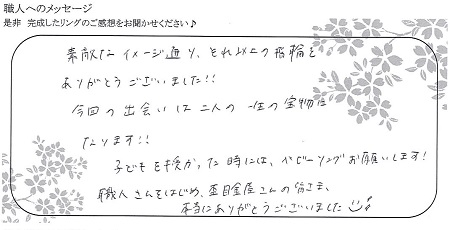 職人へのメッセージ
是非 完成したリングのご感想をお聞かせください♪
素敵なイメージ通り、それ以上の指輪を
ありがとうございました!!
今回の出会いは二人の一生の宝物に
なります!!
子どもを授かった時には、ベビーリングお願いします!
職人さんをはじめ、杢目金屋さんの皆さま、
本当にありがとうございました